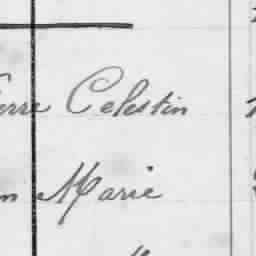 erre Celestin
n Marie